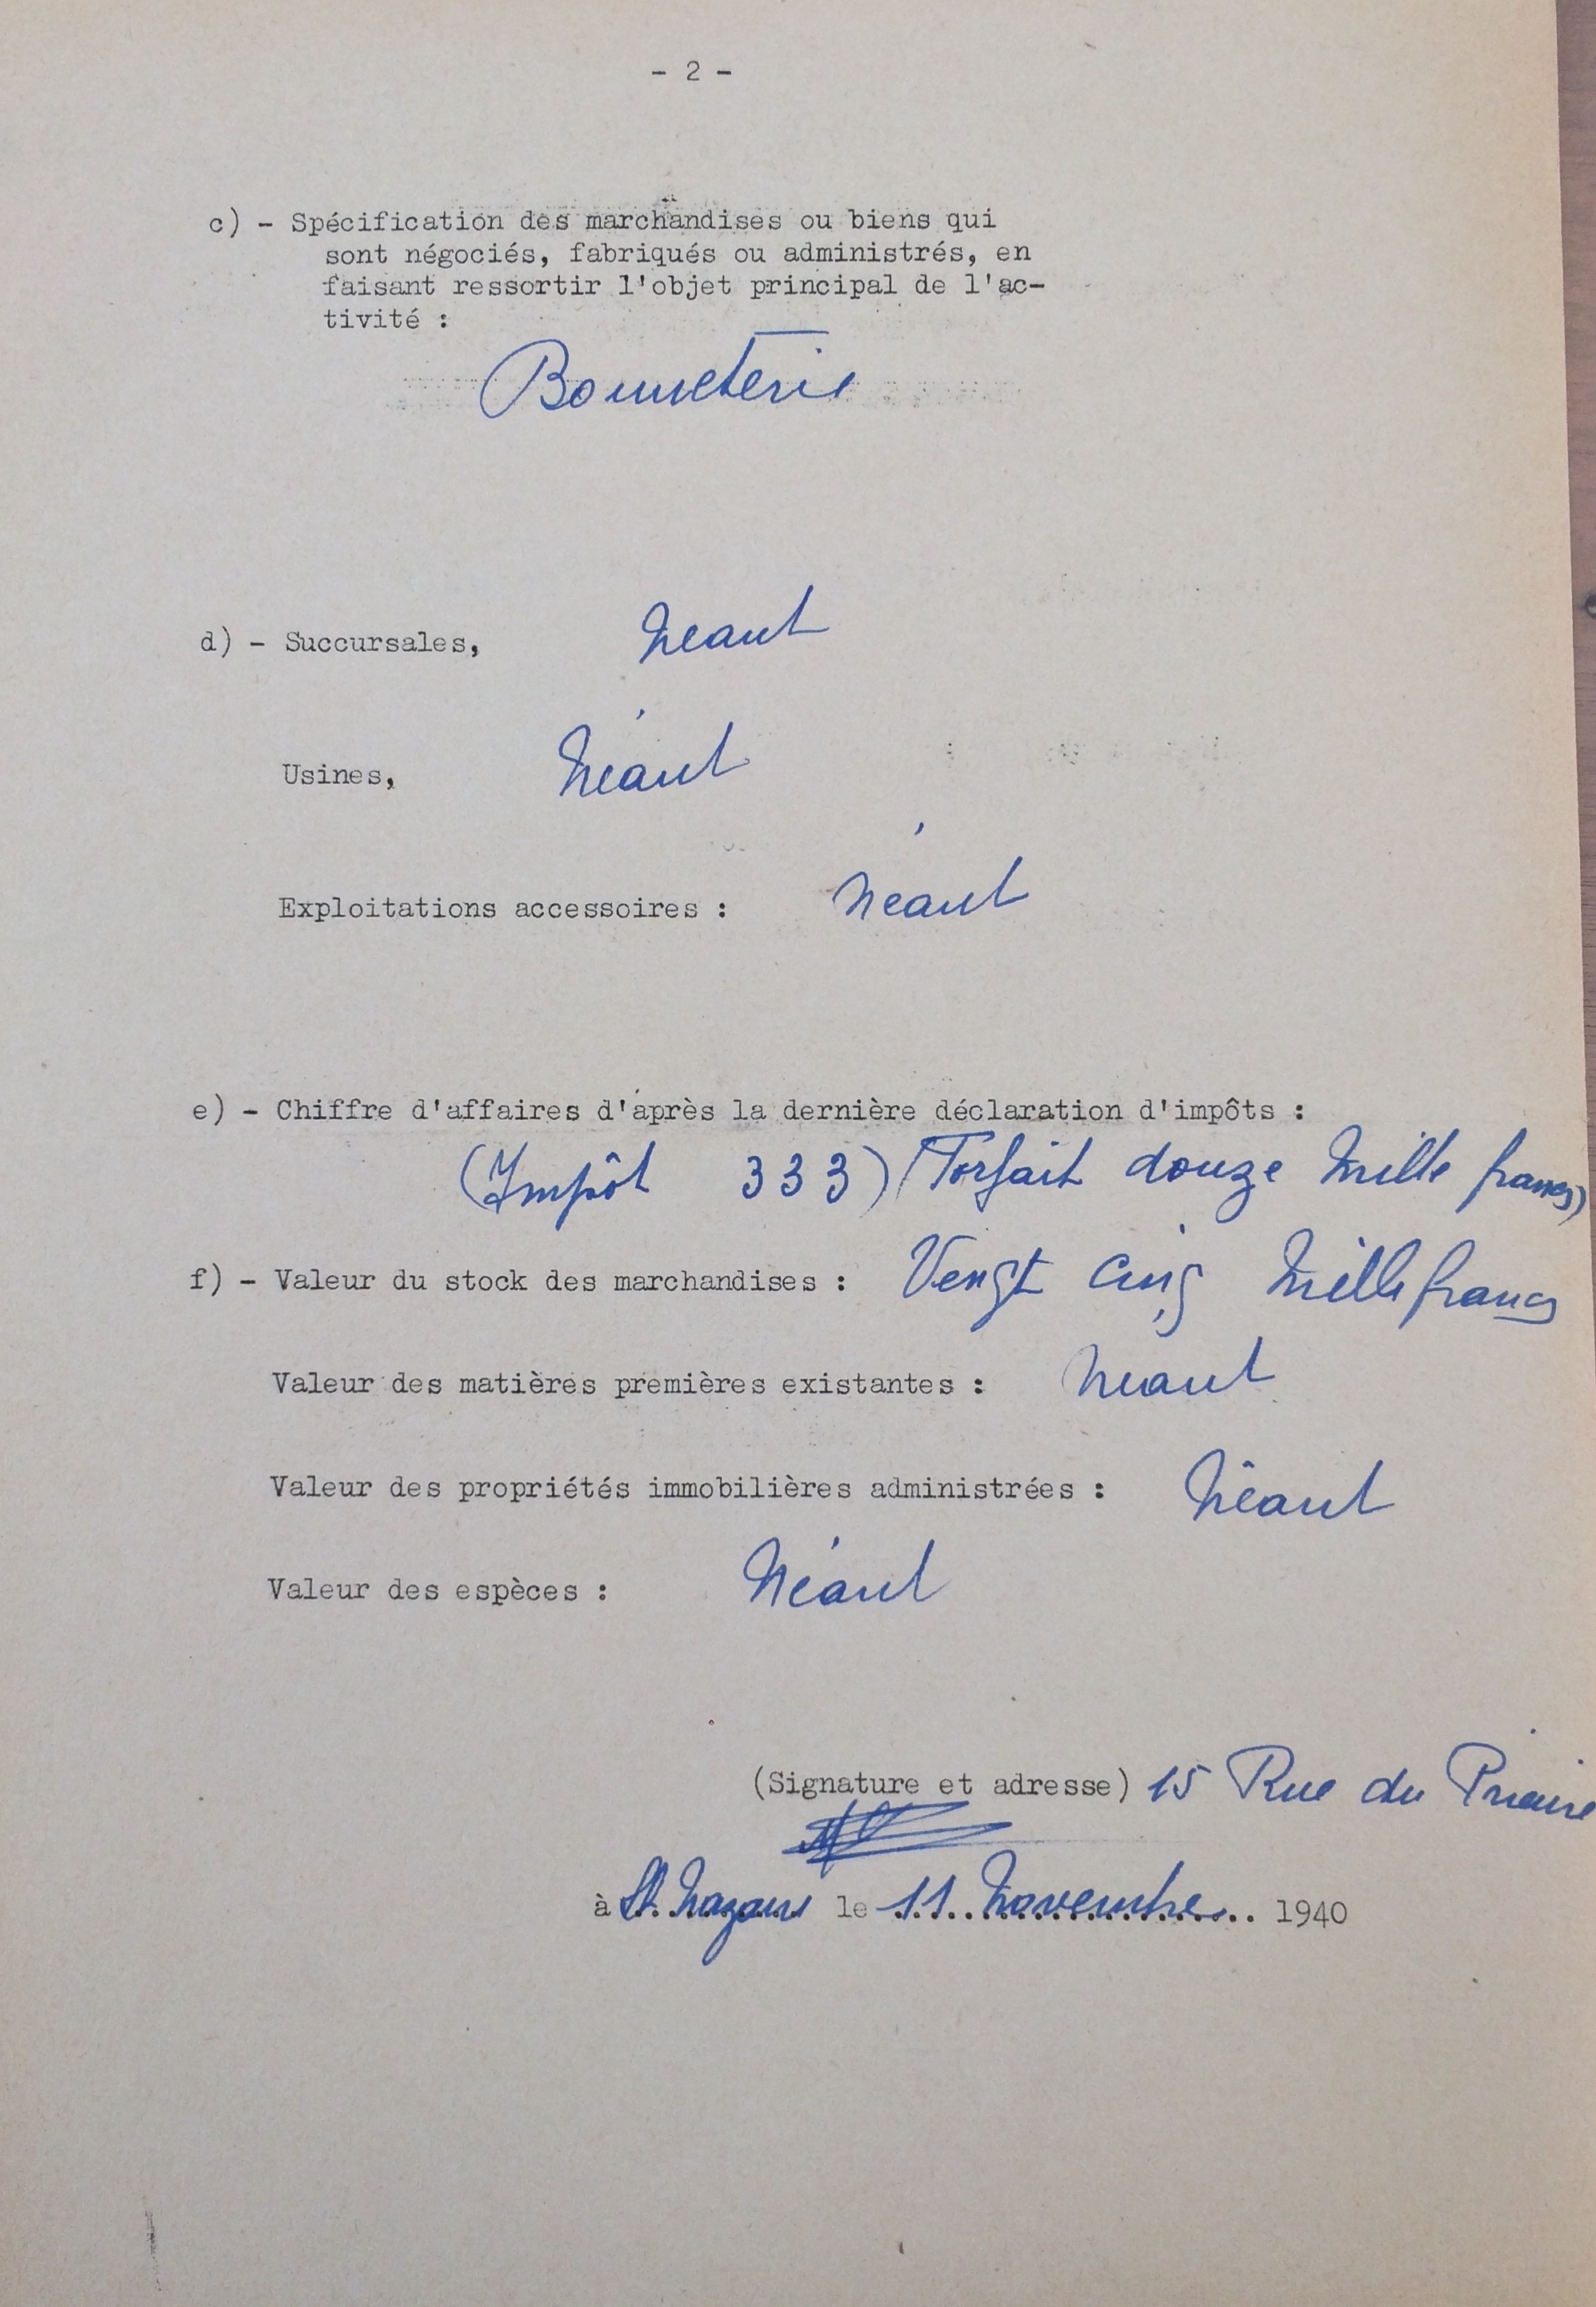 - 2 -
c) - Spécification des marchandises ou biens qui
sont négociés, fabriqués ou administrés, en
faisant ressortir l'objet principal de l'ac-
tivité :
Bonneterie
d) - Succursales, Neant
Usines, Néant
Exploitations accessoires : Néant
e) - Chiffre d'affaires d'après la dernière déclaration d'impôts :
(Impôt 333) (Forfait douze mille francs)
f) - Valeur du stock des marchandises : Vengt cinq mille francs
Valeur des matières premières existantes : Néant
Valeur des propriétés immobilières administrées : Néant
Valeur des espèces : Néant
(Signature et adresse) 15 Rue du
à St. Nazaire le 11 Novembre 1940